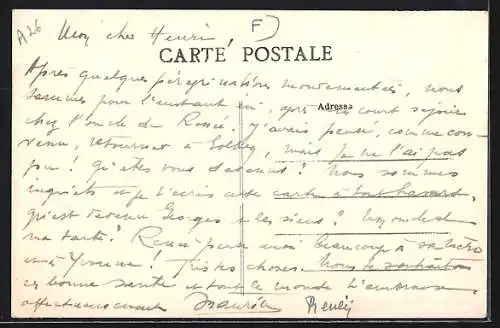 A26
Mon cher Henri, F
CARTE POSTALE
Après quelques pérégrinations mouvementées, nous
sommes pour l'instant ici, court séjour
Adresse
chez l'oncle de Renée. J'avais pensé, comme con-
venu, retourner à mais je ne l'ai pas
pu! Qu'êtes vous devenus? Nous sommes
inquiets et je t'écris cette carte à tout hasard.
Qu'est devenu Georges & les siens?
ta santé? Renée pense moi beaucoup à
Yvonne! Tristes choses. Nous te souhaitons
bonne santé et tout le monde t'embrasse
affectueusement Maurice Renée